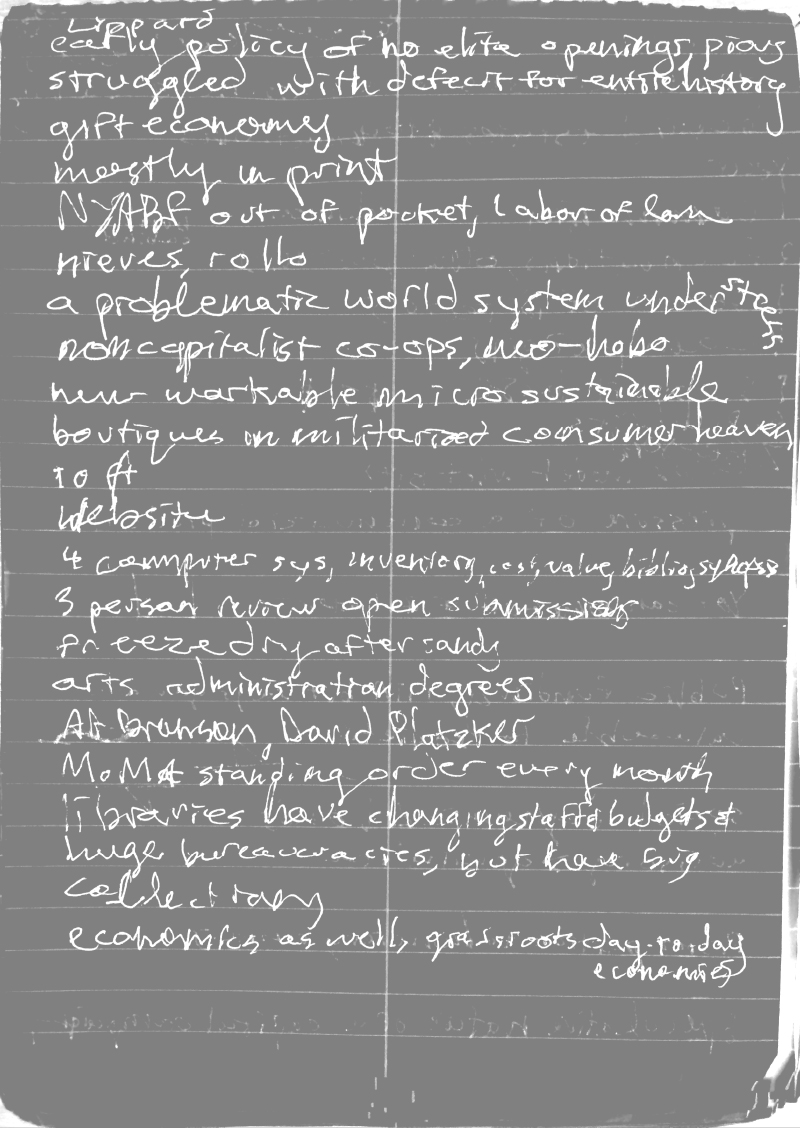 Lippard
early policy of no elite openings, pious
struggled with defecit for entire history
gift economy
mostly in print
NYABF out of pocket, labor of love
nieves, rollo
a problematic world system under
noncapitalist co-ops, neo-hobo
new workable micro sustainable
boutiques in militarized consumer heaven
10 ft
website
4 computer sys, inventory, cost, value, biblio, synopsis
3 person review open submissions
freeze dry after sandy
arts administration degrees
AA Bronson, David Platzker
MoMA standing order every month
libraries have changing staff & budgets &
huge bureaucracies, but have big
collections
economics as well, grassroots day-to-day
economies